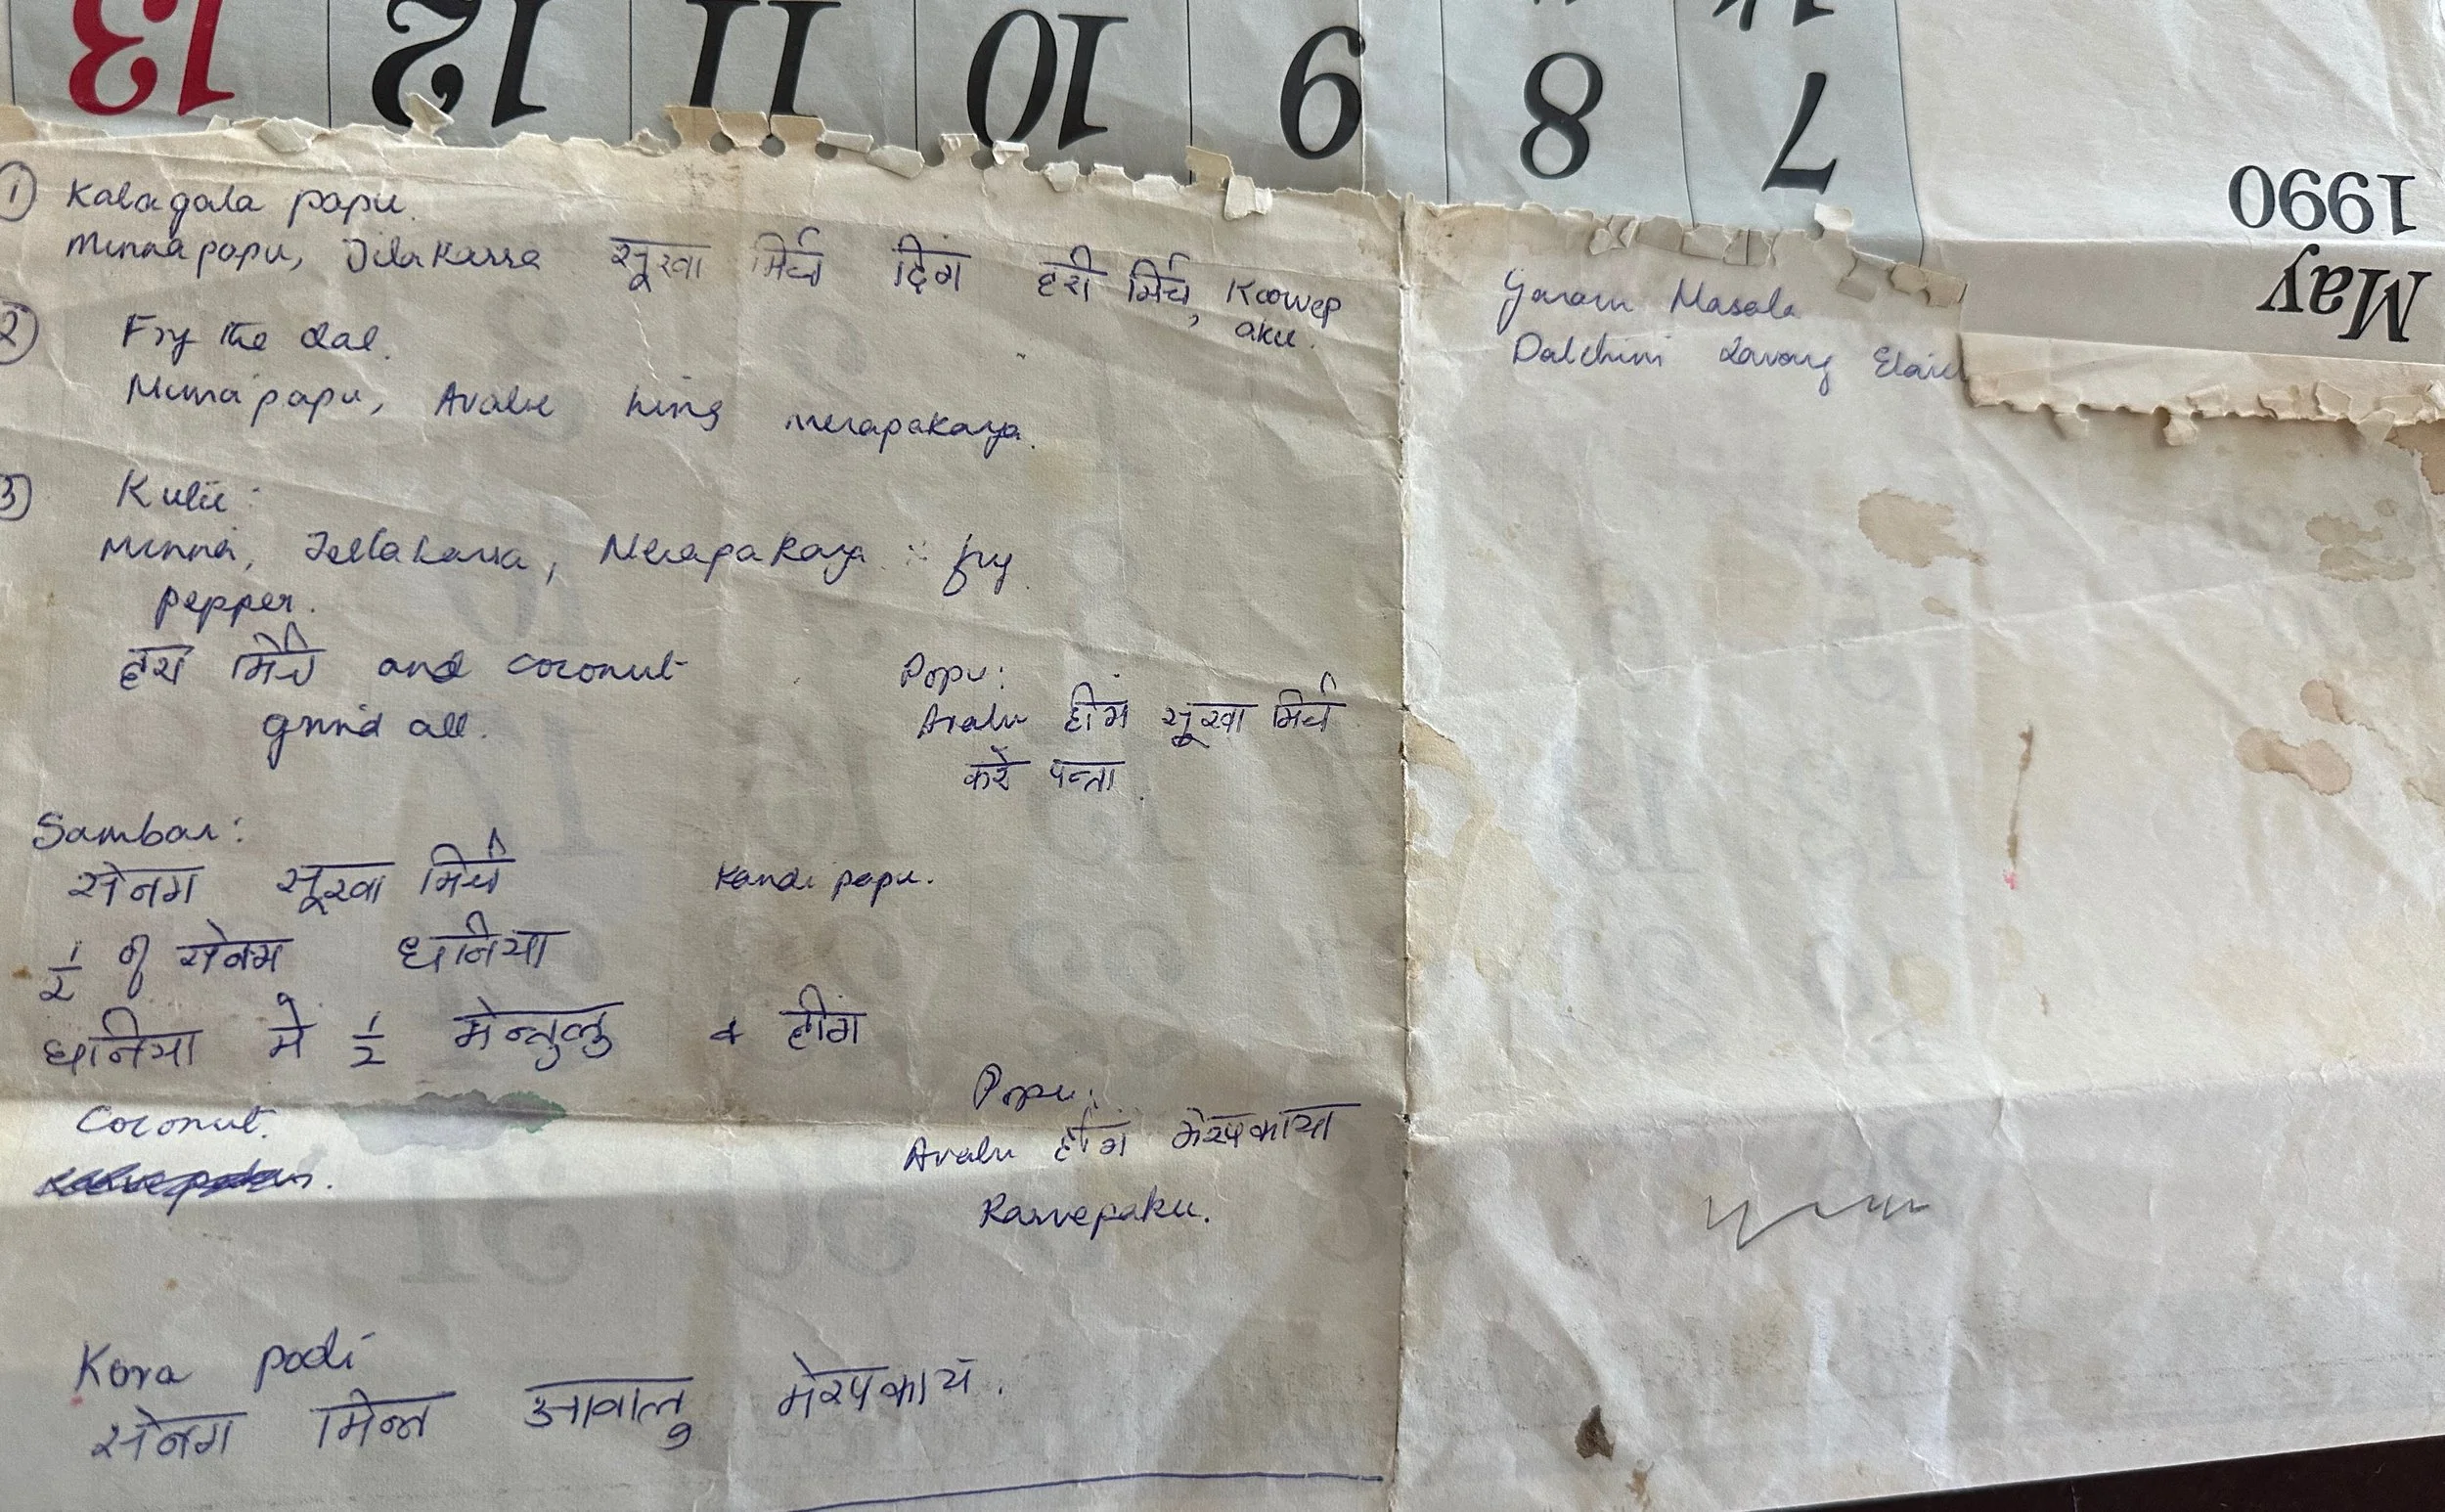 13 12 11 10 9 8 7
1990
May
① Kalagala papu.
Minnapapu, Jilakarra सूखा मिर्च हिंग हरी मिर्च, Karvep
aku.
② Fry the dal.
Minnapapu, Avalu hing merapakaya.
③ Kulu:
Minna, Jeelakarra, Merapakaya : fry.
pepper.
हरा मिर्च and coconut
grind all.
Popu:
Avalu हींग सूखा मिर्च
करे पत्ता.
Sambar:
सेनग सूखा मिर्च Kandi papu.
1/2 of सेनग धनिया
धनिया मे 1/2 मेन्तुलु & हींग
Coconut.
Popu:
Avalu हींग मेरपकाया
Karvepaku.
Kora podi
सेनग मिन्न आवालु मेरपकाय.
Garam Masala
Dalchini Lavang Elaic